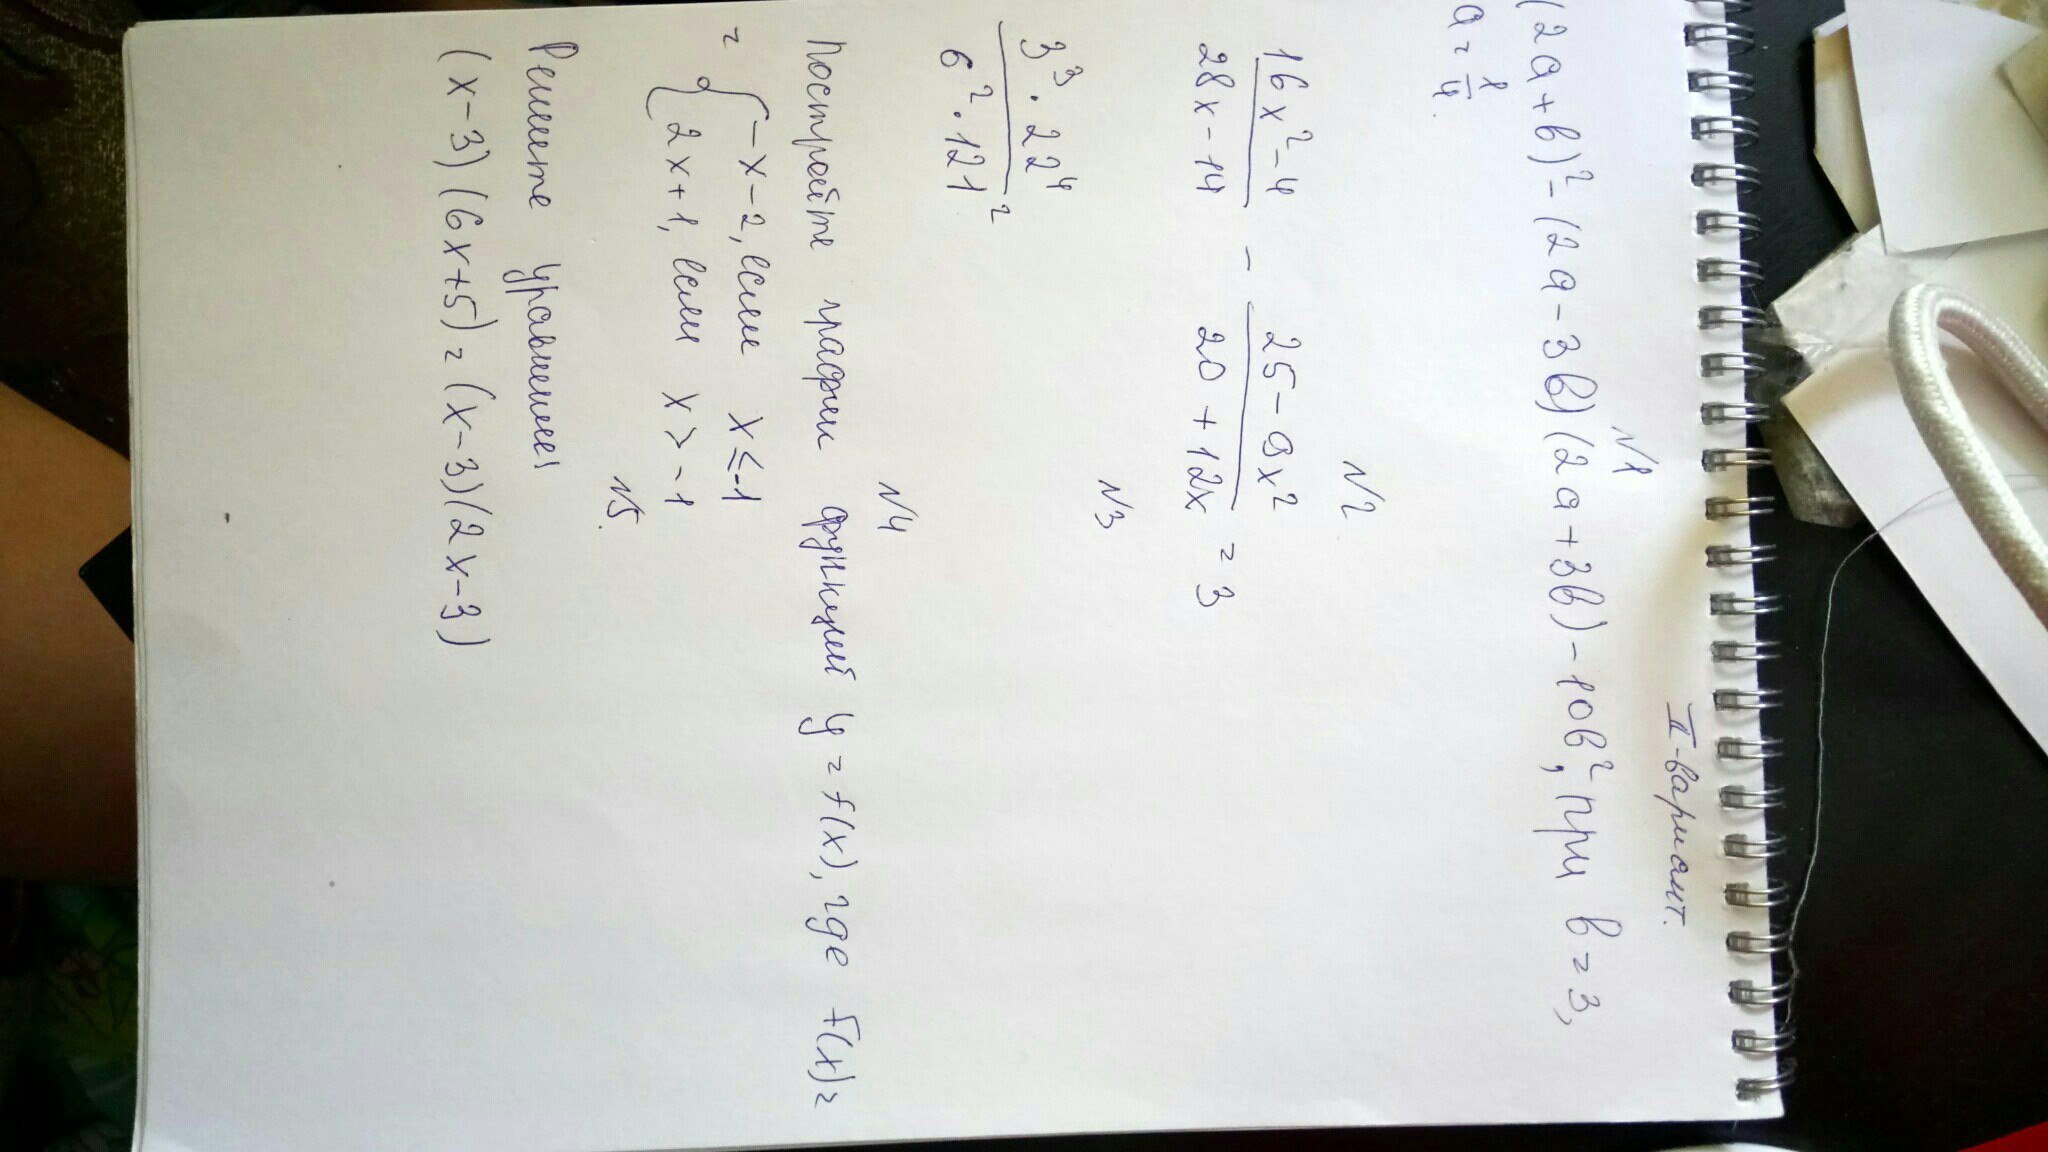 II-вариант.
N1
(2a+b)² - (2a-3b)(2a+3b) - 10b², при b=3,
a = 1/4
N2
16x²-4 / 28x-14 - 25-9x² / 20+12x = 3
N3
3³ · 22⁴ / 6² · 121²
N4
Постройте график функций y = f(x), где f(x)=
= { -x-2, если x ≤ -1
2x+1, если x > -1
N5.
Решите уравнение
(x-3)(6x+5) = (x-3)(2x-3)